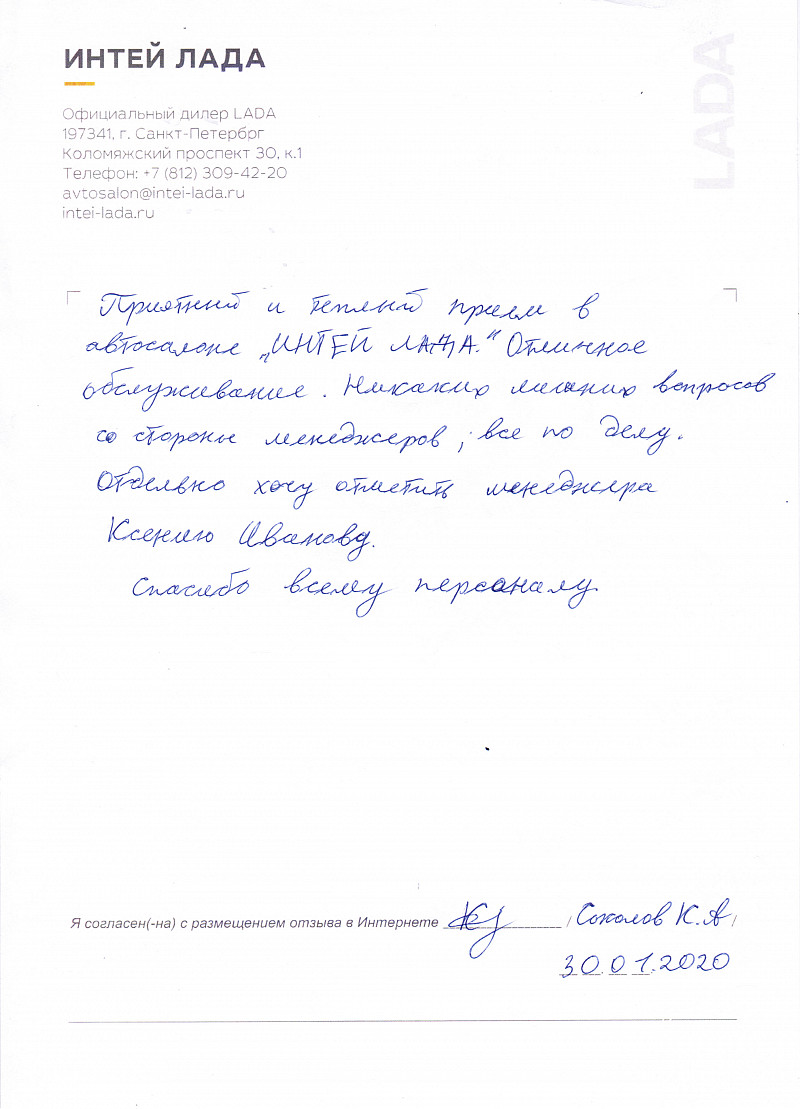 ИНТЕЙ ЛАДА
LADA
Официальный дилер LADA
197341, г. Санкт-Петербрг
Коломяжский проспект 30, к.1
Телефон: +7 (812) 309-42-20
avtosalon@intei-lada.ru
intei-lada.ru
Приятный и теплый прием в
автосалоне „ИНТЕЙ ЛАДА.“ Отличное
обслуживание. Никаких лишних вопросов
со стороны менеджеров, все по делу.
Отдельно хочу отметить менеджера
Ксению Иванову.
Спасибо всему персоналу.
Я согласен(-на) с размещением отзыва в Интернете / Соколов К.А /
30.01.2020